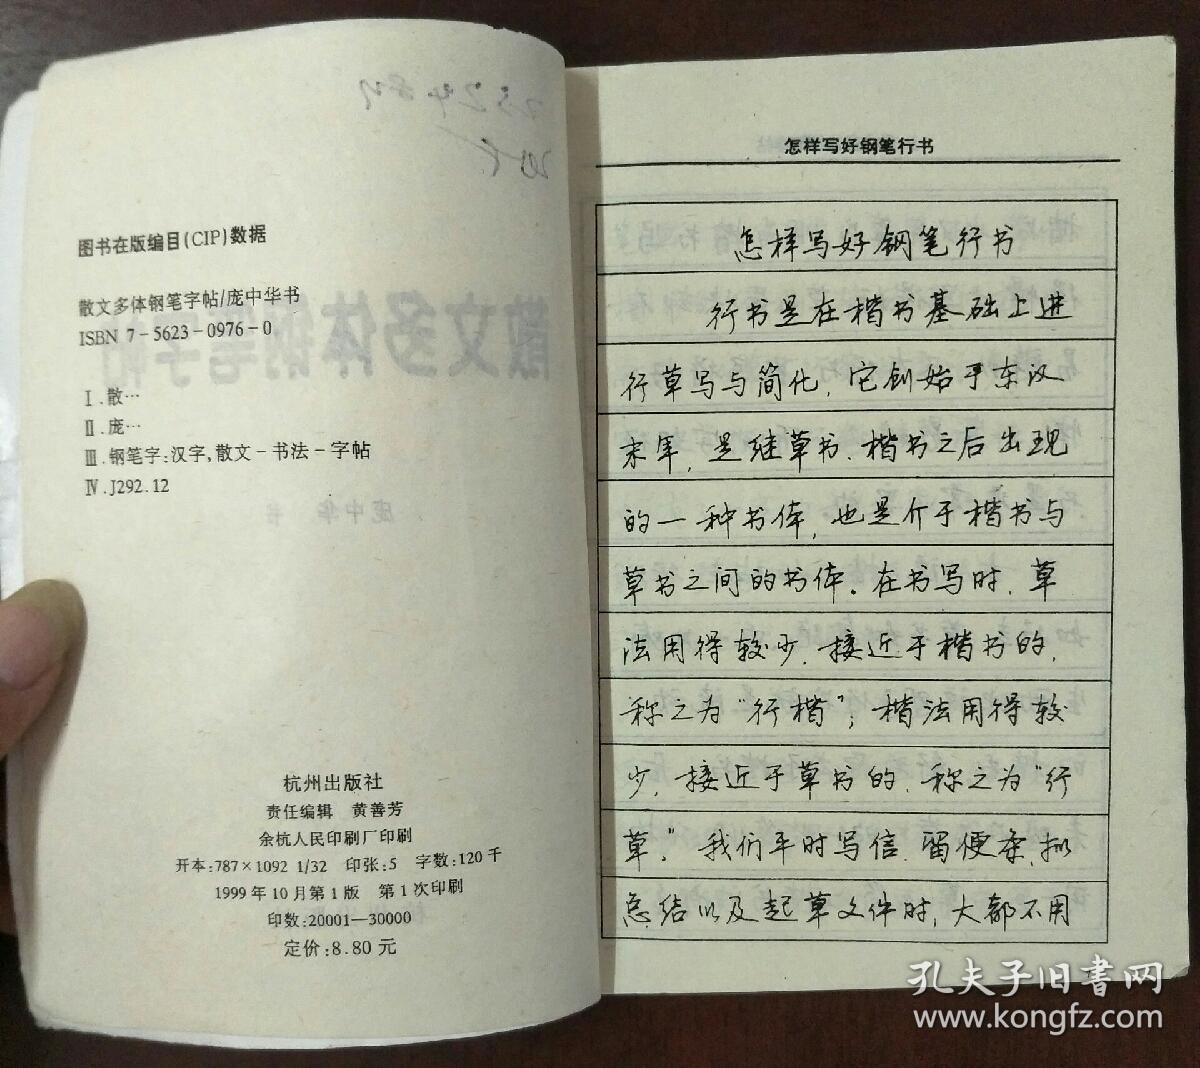 图书在版编目(CIP)数据
散文多体钢笔字帖/庞中华书
ISBN 7-5623-0976-0
Ⅰ.散…
Ⅱ.庞…
Ⅲ.钢笔字:汉字,散文-书法-字帖
Ⅳ.J292.12
杭州出版社
责任编辑 黄善芳
余杭人民印刷厂印刷
开本:787×1092 1/32 印张:5 字数:120千
1999年10月第1版 第1次印刷
印数:20001—30000
定价:8.80元
怎样写好钢笔行书
怎样写好钢笔行书
行书是在楷书基础上进
行草写与简化,它创始于东汉
末年,是继草书、楷书之后出现
的一种书体,也是介于楷书与
草书之间的书体。在书写时,草
法用得较少,接近于楷书的,
称之为“行楷”;楷法用得较
少,接近于草书的,称之为“行
草。”我们平时写信、留便条、拟
总结以及起草文件时,大都不用
孔夫子旧書网
www.kongfz.com